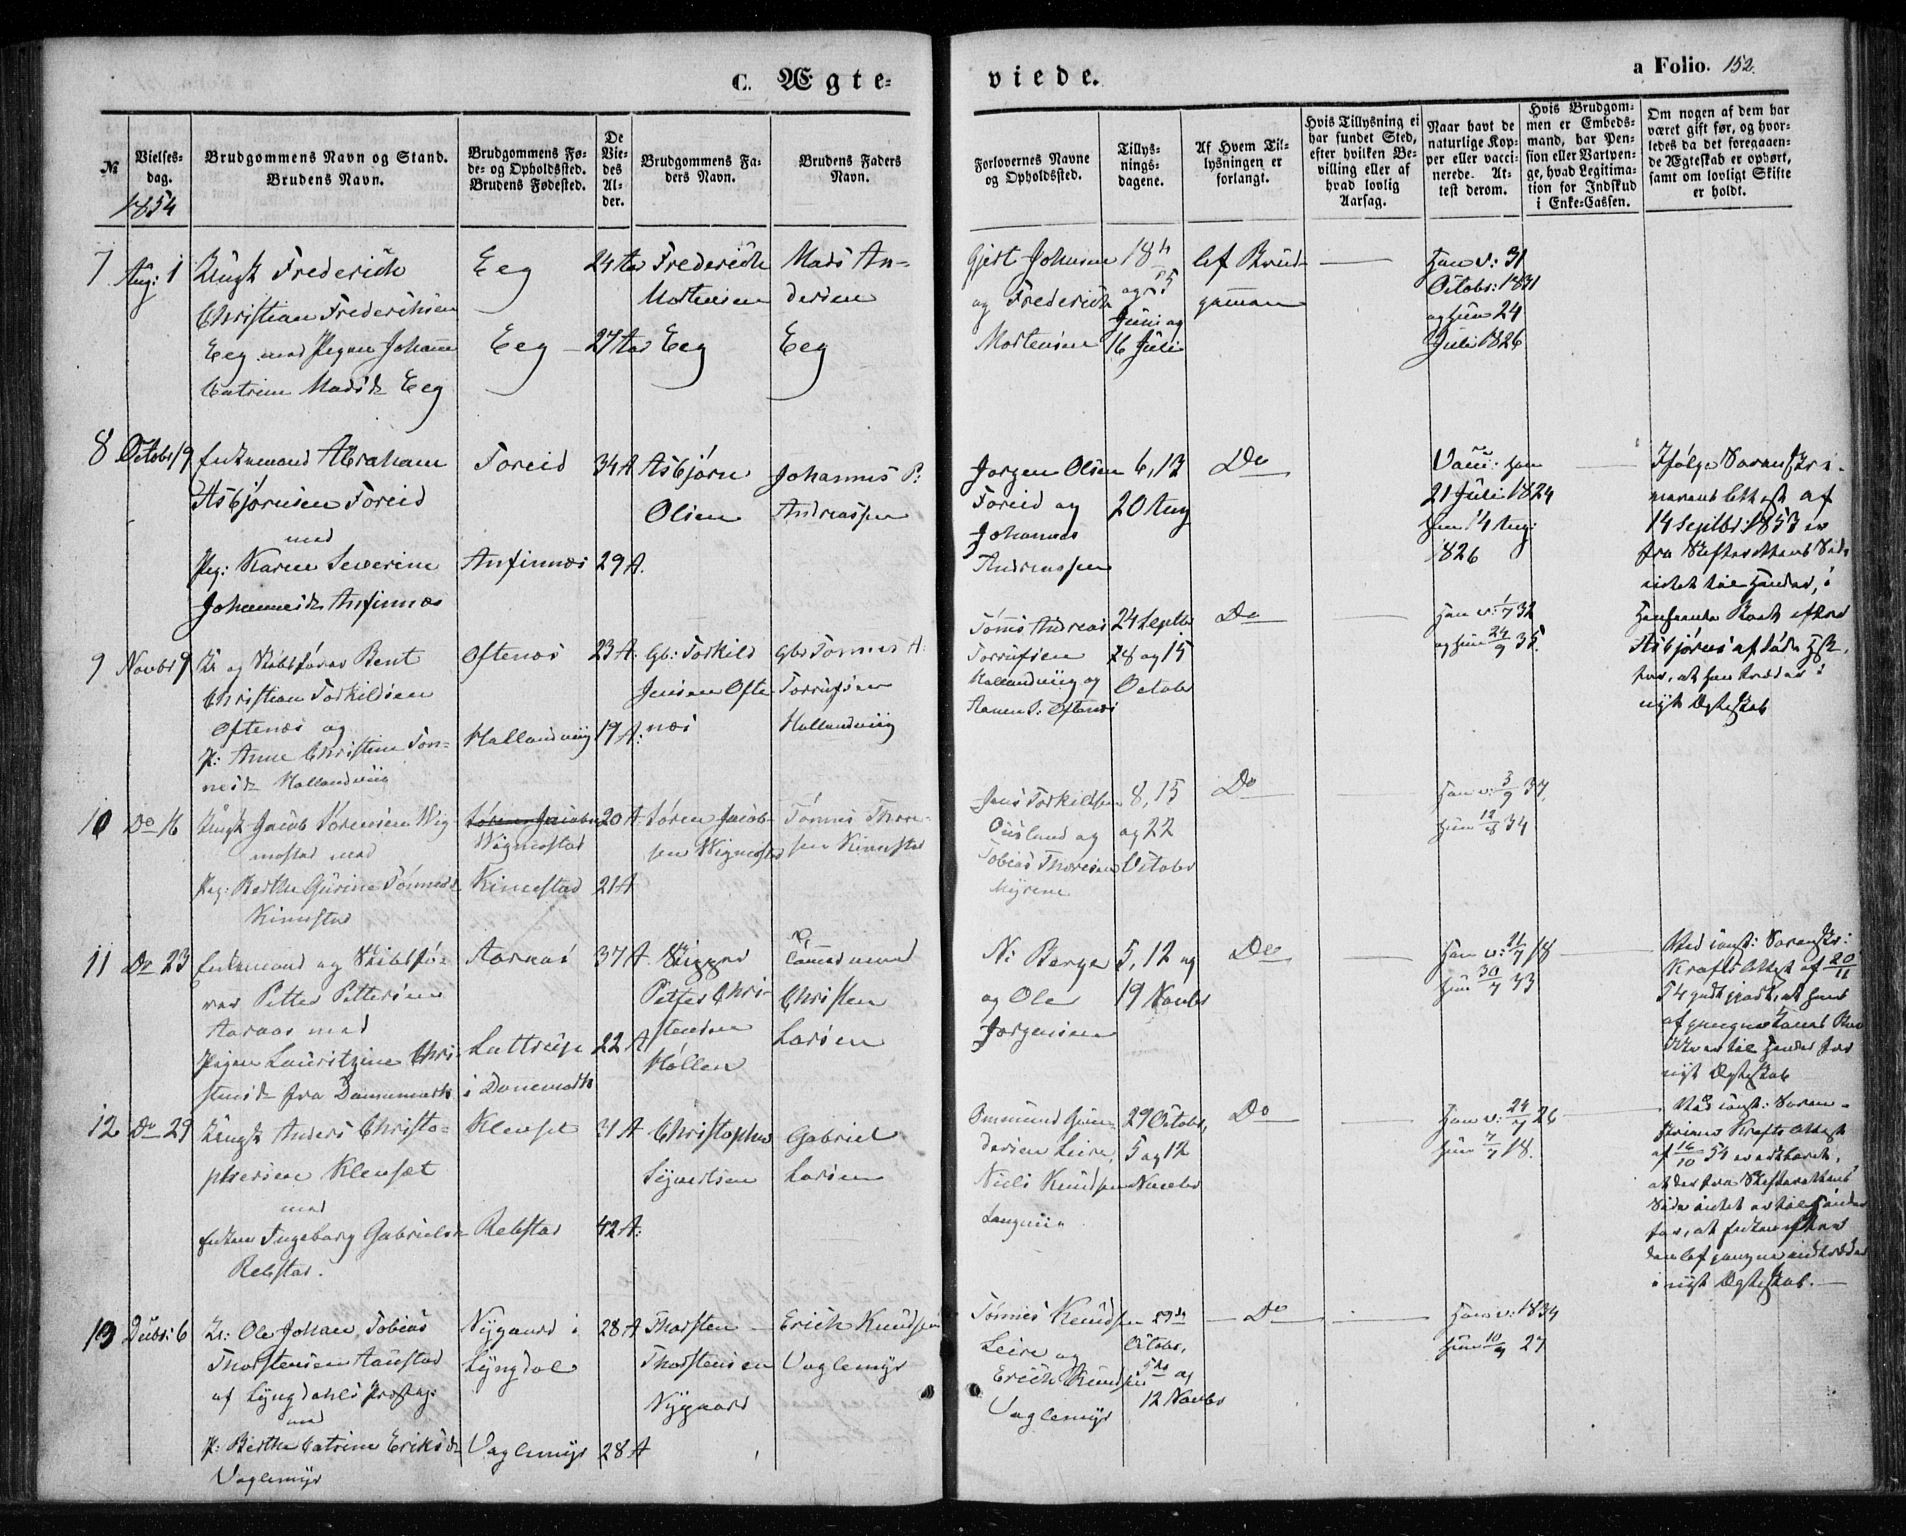 C. Ægte-
viede.
a Folio. 152.
№
Vielses-
dag.
1854
Brudgommens Navn og Stand.
Brudens Navn.
Brudgommens Fø-
de- og Opholdssted.
Brudens Fødested.
De
Vie-
des
Al-
der.
Brudgommens Fa-
ders Navn.
Brudens Faders
Navn.
Forlovernes Navne
og Opholdssted.
Tillys-
nings-
dagene.
Af Hvem Til-
lysningen er
forlangt.
Hvis Tillysning ei
har fundet Sted,
efter hvilken Be-
villing eller af
hvad lovlig
Aarsag.
Naar havt de
naturlige Kop-
per eller vacci-
nerede. At-
test derom.
Hvis Brudgom-
men er Embeds-
mand, har Pen-
sion eller Vartpen-
ge, hvad Legitima-
tion for Indskud
i Enke-Cassen.
Om nogen af dem har
været gift før, og hvor-
ledes da det foregaaen-
de Ægteskab er ophørt,
samt om lovligt Skifte
er holdt.
7
Aug: 1
Ungk Frederich
Christian Frederichsen
Eeg med Pigen Johanne
Catrine Madsd. Eeg
Eeg
Eeg
24 Aar
27 Aar
Frederich
Mortensen
Eeg
Mads An-
dersen
Eeg
Gjert Johnsen
og Frederich
Mortensen
18 4
og 25
Juni og
16 Juli
Af Brud-
gommen
Han v: 31
Octobr: 1831
og hun 24
Juli 1826
8
Octobr 19
Enkemand Abraham
Asbjørnsen Foreid
med
Pig: Karen Severine
Johannesd. Anfinnæs
Foreid
Anfinnæs
34 A
29 A.
Asbjørn
Olsen
Johannes P:
Andreassen
Jørgen Olsen
Foreid og
Johannes
Andreassen
6, 13
20 Aug
Do
Vacc: han
21 Juli 1824
hun 14 Aug:
1826
Ifølge Sorenskri-
verens Attest af
14 Septbr: 1853 er
fra Skifterettens Side
intet til Hinder, i
Asbjørns
nyt Ægteskab
9
Novbr 9
K. og Skibsfører Bent
Christian Torkildsen
Oftenæs og
P: Anne Christine Tøn-
nesd. Hallandviig
Oftenæs
Hallandviig
23 A:
19 A:
Gb: Torkild
Jensen Ofte-
næs
Gbr Tønnes A:
Torrufsen
Hallandviig
Tønnes Andreas
Torrufsen
Hallandviig og
Aanen S: Oftenæs
24 Septbr
28 og 15
Octobr
Do
Han v: 1/7 32
og hun 24/9 35.
10
Do 16
Ungk Jacob Sørensen Wig-
mostad med
Pig: Berthe Gurine Tønnesd.
Kimestad
Søren Jacobs
Wigmostad
Kimestad
20 A
21 A
Søren Jacob-
sen Wigmostad
Tønnes Thore-
sen Kimestad
Jens Torkildsen
Øusland og
Tobias Thoresen
Myrene
8, 15
og 22
Octobr
Do
Han v: 3/9 37.
hun 12/8 34
11
Do 23
Enkemand og Skibsfø-
rer Petter Pettersen
Aaraas med
Pigen Lauritzine Chri-
stensd. fra Dannemark
Aaraas
Luttrup
i Danemark
37 A
22 A
Skipper
Petter Chri-
stensen
Høllen
Christen
Larsen
N: Berge
og Ole
Jørgensen
5, 12 og
19 Novbr
Do
Han v: 11/7 18
hun 30/7 33
Ved const: Sorenskr:
Krafts Attest af 20/11
54 godtgjort, at hans
nyt Ægteskab
12
Do 29
Ungk Anders Christo-
phersen Klevset
med
Enken Ingeborg Gabrielsd.
Rebstad.
Klevset
Rebstad
31 A
42 A:
Christopher
Syvertsen
Gabriel
Larsen
Ommund Gun-
dersen Leire,
Niels Knudsen
29 Octobr,
5 og 12
Novebr
Do
Han v: 24/7 26
hun 7/7 18.
Ved const: Soren-
skriver Krafts Attest
af 16/10 54
at der fra Skifterettens
Side intet er til Hinder
for, at Enken efter
i nyt Ægteskab.
13
Decbr: 6
K: Ole Johan Tobias
Thorstensen Aanstad
af Lyngdahls Præsteg:
med
P: Berthe Catrine Eriksd.
Vaglemyr
Nygaard i
Lyngdal
Vaglemyr
28 A
28 A
Thorsten
Thorstensen
Nygaard
Erich Knudsen
Vaglemyr
Tønnes Knudsen
Leire og
Erich Knudsen
Vaglemyr
29de
Octobr,
5te og
12 Novbr
Do
Han v: 1834
hun 10/9 27